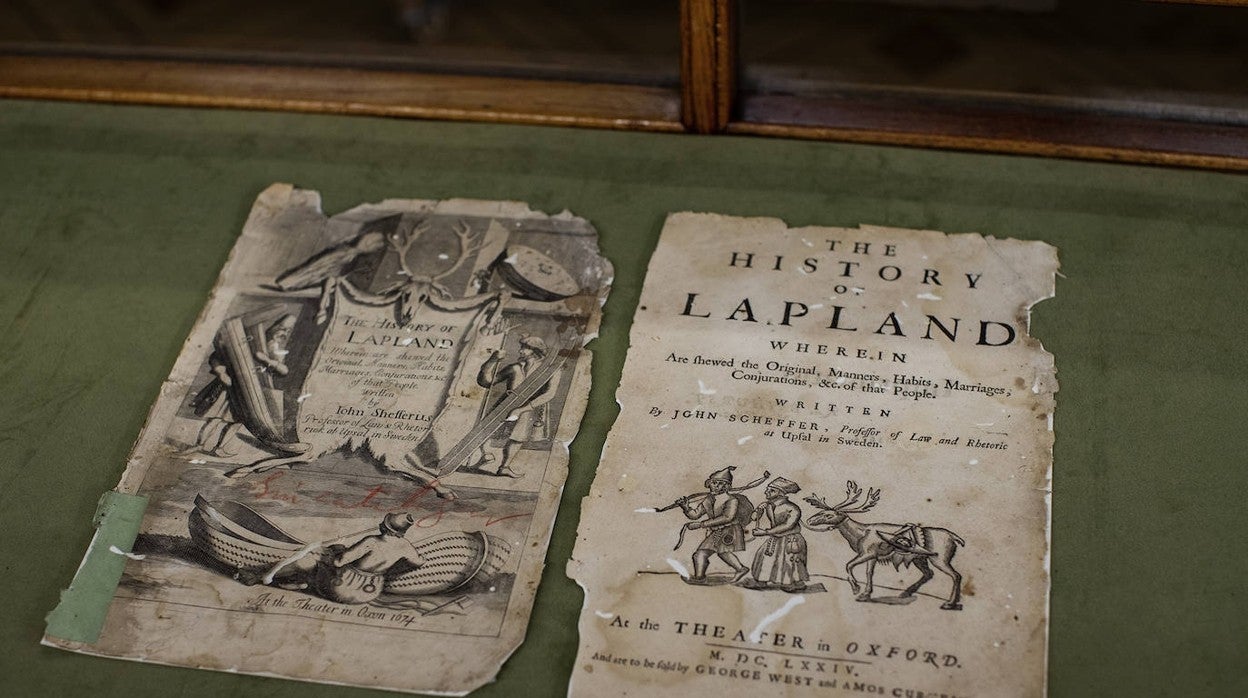 THE HISTORY OF
LAPLAND
Wherein are shewed the
Original, Manners, Habits,
Marriages, Conjurations &c.
of that People.
written
by
Iohn Shefferus
Professor of Law & Rhetor
rick at Upsal in Sweden
At the Theater in Oxon 1674
THE
HISTORY
OF
LAPLAND
WHEREIN
Are shewed the Original, Manners, Habits, Marriages,
Conjurations, &c. of that People.
WRITTEN
By JOHN SCHEFFER, Professor of Law and Rhetoric
at Upsal in Sweden.
At the THEATER in OXFORD.
M. DC. LXXIV.
And are to be sold by GEORGE WEST and AMOS